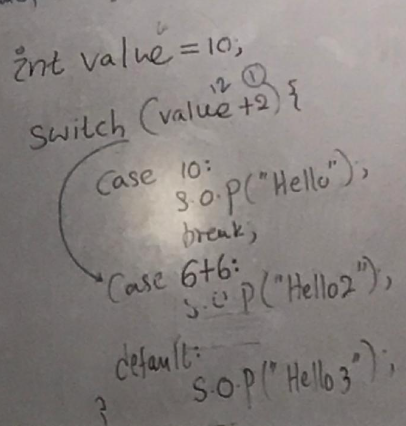 int value = 10;
12 ①
switch (value+2) {
Case 10:
S.O.P("Hello");
break;
Case 6+6:
S.O.P("Hello2");
default:
S.O.P("Hello3");
}